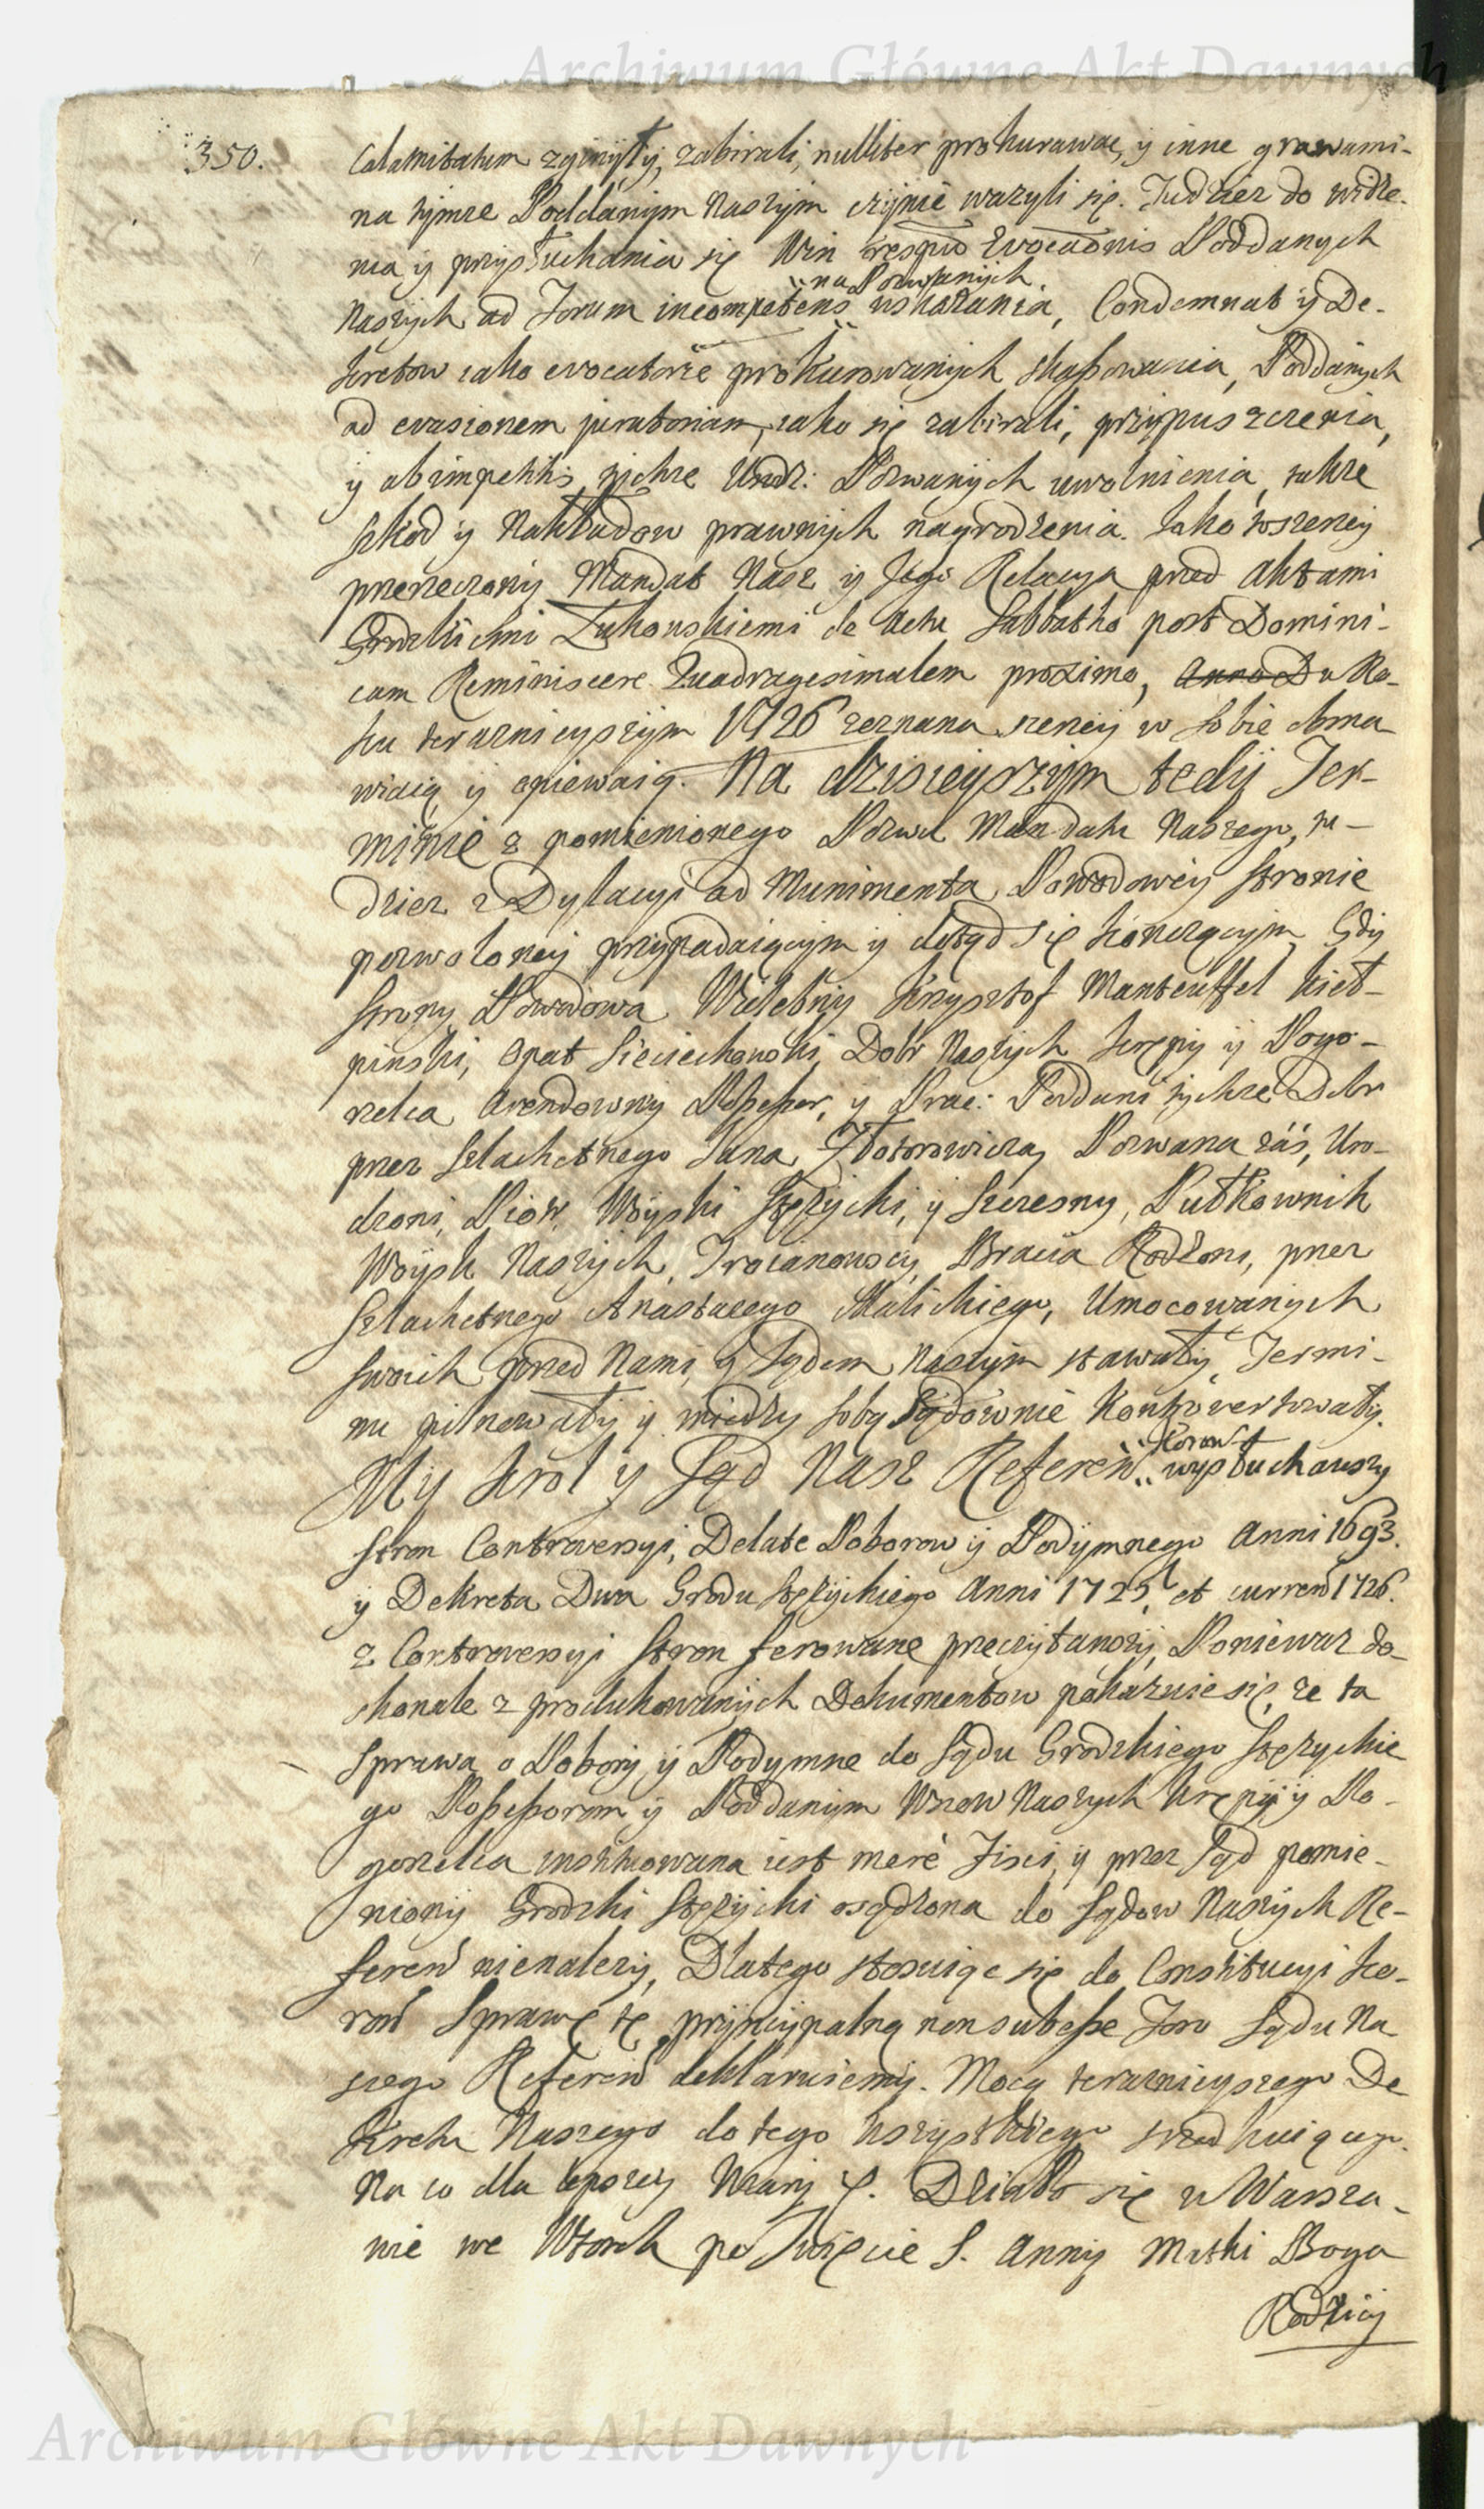 Archiwum Główne Akt Dawnych
350.
Calamitatum zginęły, zabirali, nulliter prokurować, y inne grawami-
na tymze Poddanym Naszym czynić wazyli się. Tudziez do widze-
nia y przysłuchania się Win respū Evocaōnis Poddanych
na Pozwanych
Naszych ad Forum incompetens wskazania, Condemnat y De-
kretow iako evocatorie prokurowanych skassowania, Poddanych
ad evasionem juratoriam, iako się zabirali, przypuszczenia,
y ab impetitis tychze Urodz: Pozwanych uwolnienia, takze
szkod y Nakładow prawnych nagrodzenia. Iako szerzey
przerzeczony Mandat Nasz y Jego Relacya przed Aktami
Grodzkiemi Łukowskiemi de Actu Sabbatho post Domini-
cam Reminiscere Quadragesimalem proximo, Anno D u Ro-
ku teraznieyszym 1726 zeznana szerzey w sobie obma-
wiaią y opiewaią. Na dzisieyszym tedy Ter-
minie z pomienionego Pozwu Mandatu Naszego, tu-
dziez z Dylacyi ad Munimenta Powodowey stronie
pozwoloney przypadaiącym y dotąd się kączącym, Gdy
strony Powodowa Wielebny Krzysztof Manteuffel Kieł-
pinski, Opat Sieciechowski, Dobr Naszych Krępy y Pogo-
rzelca Arendowny Possessor, y Prac: Poddani tychze Dobr
przez Szlachetnego Jana Złotorowicza, Pozwana zaś, Uro-
dzoni, Piotr, Woyski Stęzycki, y Szczesny, Pułkownik
Woysk Naszych, Trocianowscy, Bracia Rodzoni, przez
Szlachetnego Anastazego Malickiego, Umocowanych
swoich przed Nami, y Sądem Naszym stawały, Termi-
nu pilnowały y między sobą Sądownie Kontrowertowały.
Koron
My Krol y Sąd Nasz Referen wysłuchawszy
stron Controversyi, Delate Poborow y Podymnego Anni 1693.
y Dekreta Dwa Grodu Stęzyckiego Anni 1725, et curren 1726.
z Controversyi stron ferowane przeczytawszy, Poniewaz do-
skonale z produkowanych Dokumentow pokazuie się, ze ta
sprawa o Pobory y Podymne do Sądu Grodzkiego Stęzyckie
go Possessorom y Poddanym Wsiow Naszych Krępy y Po-
gorzelca instituowana iest mere Fisci, y przez Sąd pomie-
niony Grodzki Stęzycki osądzona do Sądow Naszych Re-
feren nienalezy, Dlatego stosuiąc się do Constitucyi Ko-
ron Sprawę tę pryncypalną non subesse Foro Sądu Na
szego Referen deklaruiemy. Mocą teraznieyszego De
kretu Naszego do tego wszystkiego
Na co dla lepszey Wiary &. Działo się w Warsza-
wie we Wtorek po Swięcie S. Anny Matki Boga
Rodzicy
Archiwum Główne Akt Dawnych